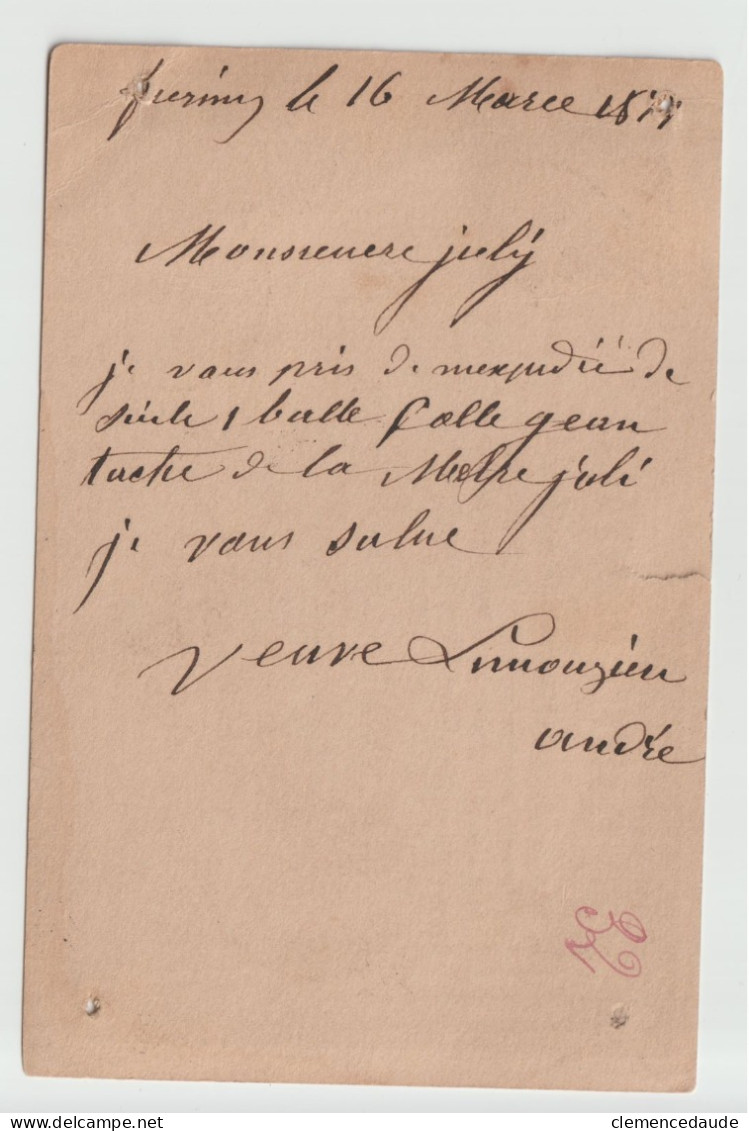 le 16 Marce 1877
Monssieuere joly
je vous pris de mexpedié de
suite 1 balle Colle gean
tache de la Melre joli
je vous salue
veuve Limouzien
andée
clemencedaude